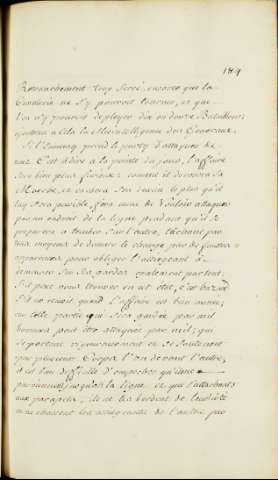 184
Retranchement trop serré, ensorte que la
Cavalerie ne s'y pouvoit tourner, et que
l'on n'y pouvoit deployer dix ou douze Bataillons;
ajoutons a cela la Mesintelligence des Generaux.
Si l'Ennemy prend le party d'attaquer de
nuit C'est à dire a la pointe du jour, l'affaire
sera bien plus
Marche, et en sera le plus qu'il
luy sera possible, fera mine de Vouloir attaquer
par un endroit de la ligne pendant qu'il se
preparera a tomber sur l'autre, tâchant par
tous moyens de donner le change par de fausses
apparences pour obliger l'assiegeant à
demeurer sur ses gardes egalement partout;
S'il peut nous trouver en cet état, c'est hazard
s'il ne reussit quand l'affaire est bien menée;
car telle partie qui sera gardée par mil
hommes peut être attaquée par mil; qui
se portant vigoureusement en se soutenant
par plusieurs Corps l'un devant l'autre,
il est bien difficile d'empescher qu'ils ne
parviennent jusqu'à la ligne et que s'attachant
aux parapets, ils ne les bordent de leur côté
et ne chassent les assiegeants de l'autre par